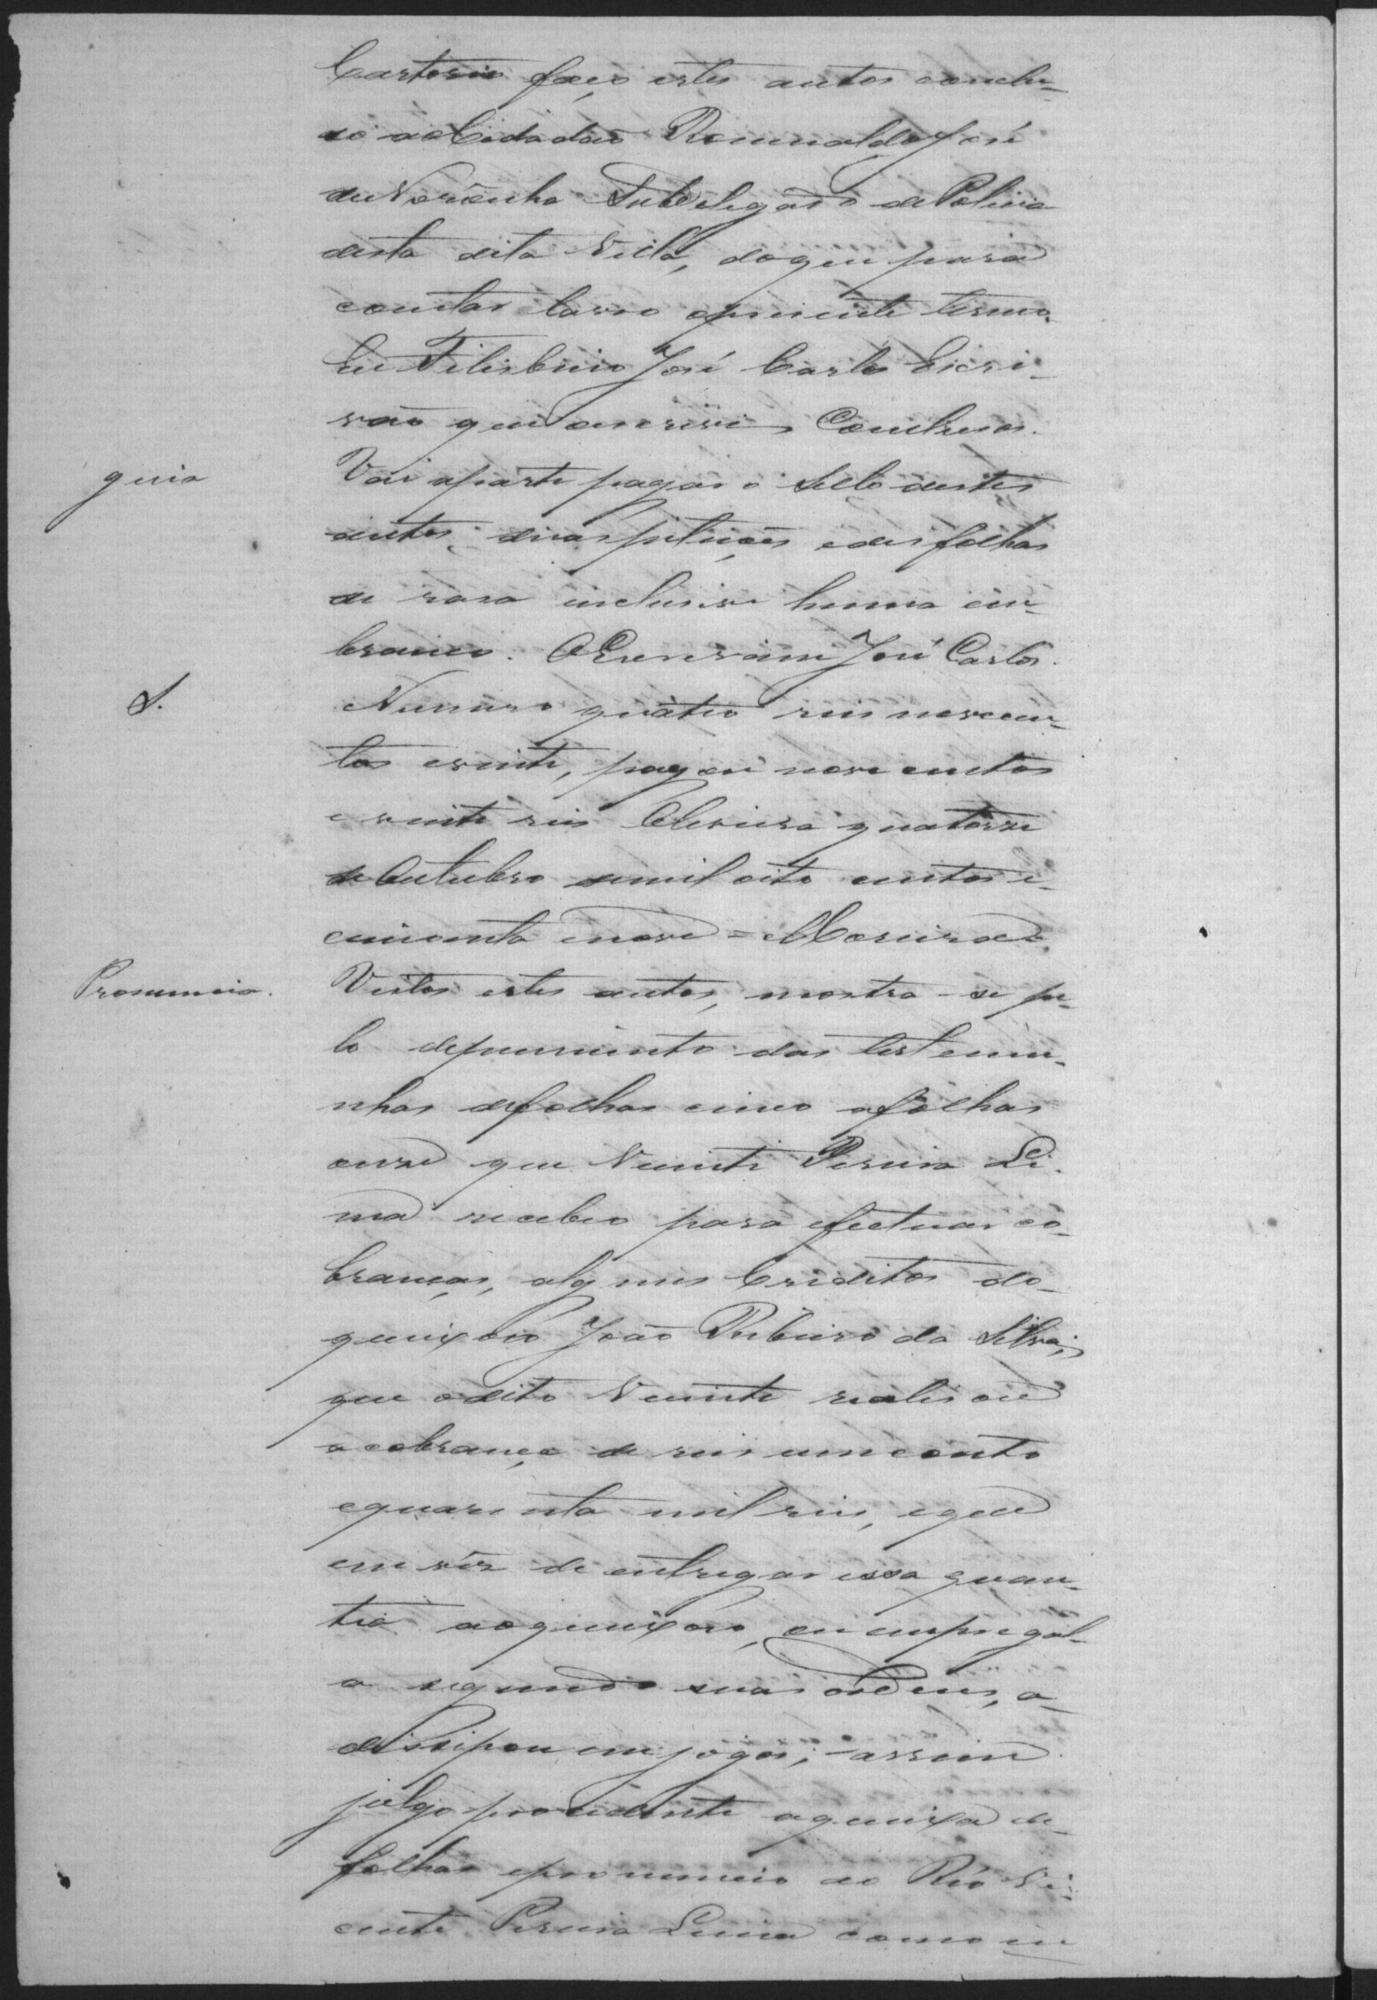 Cartorio faço estes autos conclu-
so ao Cidadão Romualdo José
de Noronha Subdelegado de Policia
desta dita Villa, do que para
constar lavro o presente termo.
Eu Filisbino José Carlos Escri-
vão que o escrevi Conclusos.
guia
Vai a parte pagar o Sello destes
autos, duas petiçoes e des folhas
de raza inclusive huma em
branco. O Escrivam José Carlos.
S.
Numero quatro reis novecen-
tos e vinte, pagou nove centos
e vinte reis Oliveira quatorze
de Outubro de mil oito centos e
cincoenta e nove = Moreira
Pronuncia.
Vistos estes autos, mostra-se pe-
lo depoimento das testemu-
nhas de folhas cinco a folhas
onze que Vicente Pereira Li-
ma recebeo para efectuar co-
branças, alguns Creditos do
queixoso João Ribeiro da Silva;
que o dito Vicente realisou
a cobrança de reis um conto
e quarenta mil reis, e que
em vêz de entregar essa quan-
tia ao queixoso, ou empregal-
a segundo suas ordens, a
dissipou em jogos; assim
julgo procedente a queixa de
folhas e pronuncio ao Réo Vi-
cente Pereira Lima como in